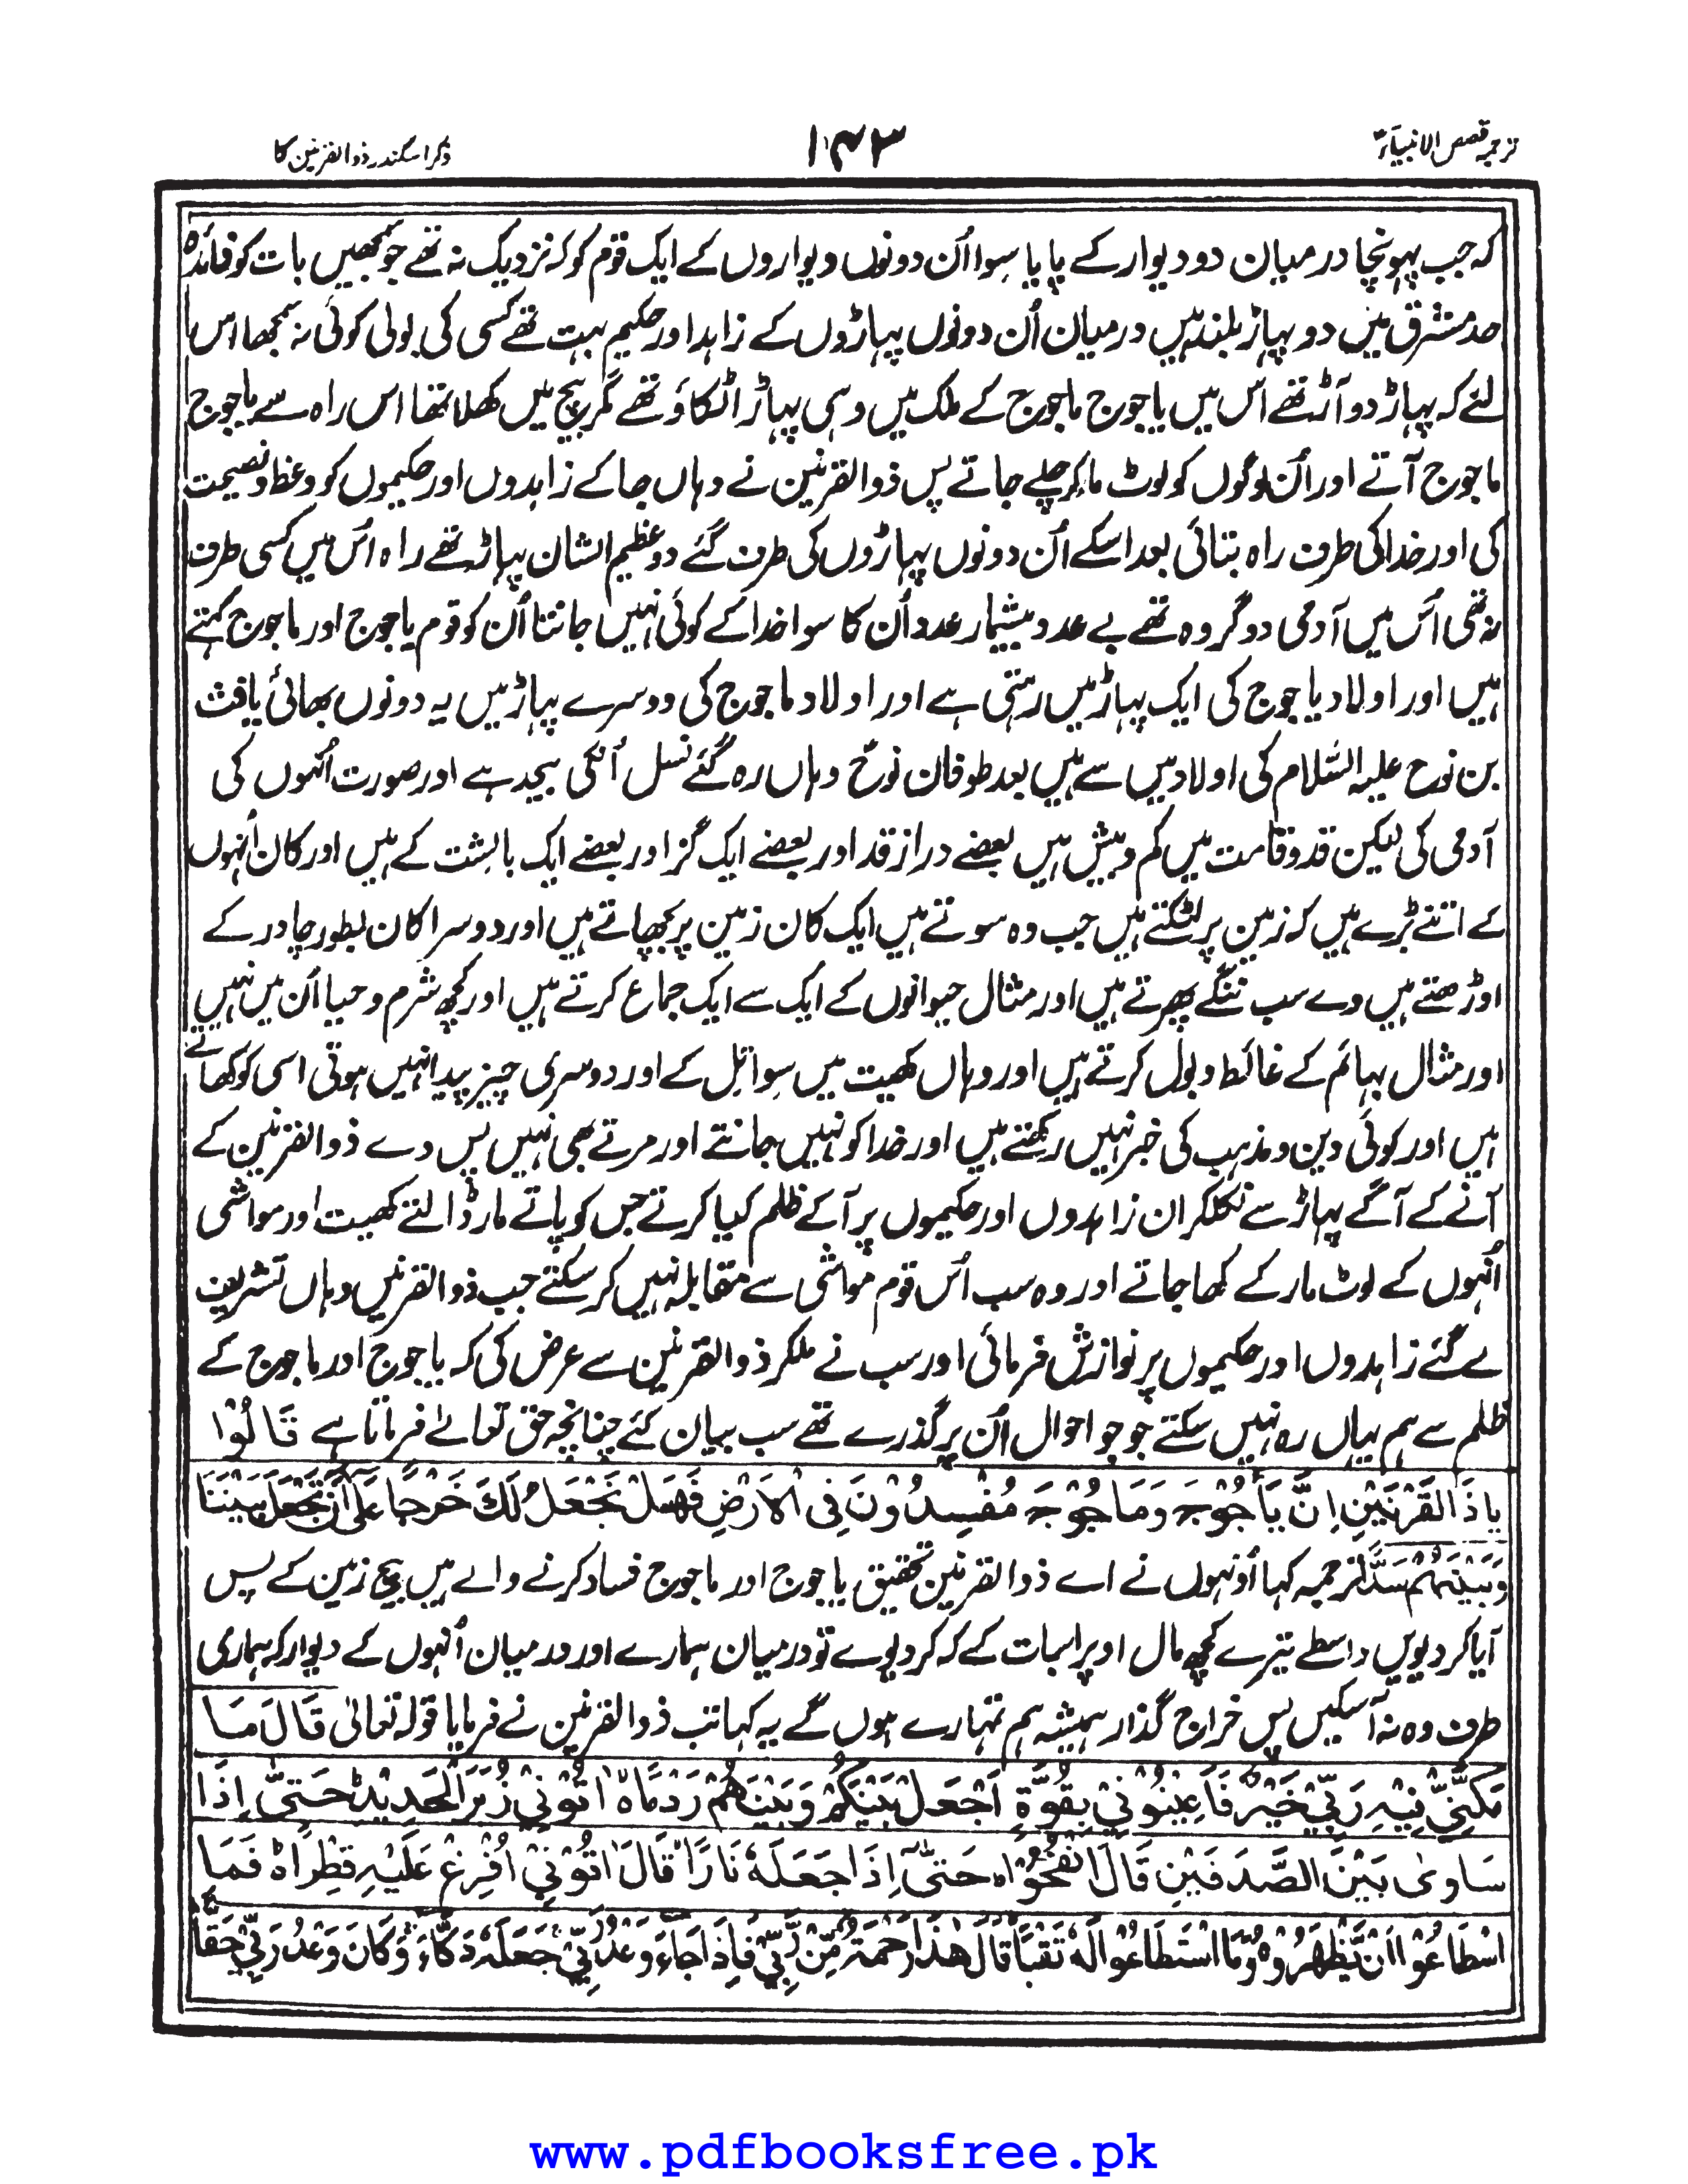 ترجمہ قصص الانبیآء
۱۴۳
ذکر اسکندر ذوالقرنین کا
کہ جب پہونچا درمیان دو دیوار کے پایا سوا اُن دونوں دیواروں کے ایک قوم کو کہ نزدیک نہ تھے جو سمجھیں بات کو فائدہ
حد مشرق میں دو پہاڑ بلند ہیں درمیان اُن دونوں پہاڑوں کے زاہد اور حکیم بہت تھے کسی کی بولی کوئی نہ سمجھا اس
لئے کہ پہاڑ دو آڑ تھے اُس میں یاجوج ماجوج کے ملک میں وہی پہاڑ اٹکاؤ تھے مگر بیچ میں کھلا تھا اس راہ سے یاجوج
ماجوج آتے اور اُن لوگوں کو لوٹ مار کر چلے جاتے پس ذوالقرنین نے وہاں جا کے زاہدوں اور حکیموں کو وعظ و نصیحت
کی اور خدا کی طرف راہ بتائی بعد اسکے اُن دونوں پہاڑوں کی طرف گئے دو عظیم الشان پہاڑ تھے راہ اُس میں کسی طرف
نہ تھی اُس میں آدمی دو گروہ تھے بے عدد و بیشمار عدد اُن کا سوا خدا کے کوئی نہیں جانتا اُن کو قوم یاجوج اور ماجوج کہتے
ہیں اور اولاد یاجوج کی ایک پہاڑ میں رہتی ہے اور اولاد ماجوج کی دوسرے پہاڑ میں یہ دونوں بھائی یافث
بن نوح علیہ السّلام کی اولاد میں سے ہیں بعد طوفان نوحؑ وہاں رہ گئے نسل اُنکی بیحد ہے اور صورت اُنہوں کی
آدمی کی لیکن قد و قامت میں کم و بیش ہیں بعضے دراز قد اور بعضے ایک گز اور بعضے ایک بالشت کے ہیں اور کان اُنہوں
کے اتنے بڑے ہیں کہ زمین پر لٹکتے ہیں جب وہ سوتے ہیں ایک کان زمین پر بچھاتے ہیں اور دوسرا کان بطور چادر کے
اوڑھتے ہیں وے سب ننگے پھرتے ہیں اور مثال حیوانوں کے ایک سے ایک جماع کرتے ہیں اور کچھ شرم و حیا اُن میں نہیں
اور مثال بہائم کے غائط و بول کرتے ہیں اور وہاں کھیت میں سوا تِل کے اور دوسری چیز پیدا نہیں ہوتی اسی کو کھاتے
ہیں اور کوئی دین و مذہب کی خبر نہیں رکھتے ہیں اور خدا کو نہیں جانتے اور مرتے بھی نہیں پس وے ذوالقرنین کے
آنے کے آگے پہاڑ سے نکلکر ان زاہدوں اور حکیموں پر آ کے ظلم کیا کرتے جس کو پاتے مار ڈالتے کھیت اور مواشی
اُنہوں کے لوٹ مار کے کھا جاتے اور وہ سب اُس قوم مواشی سے مقابلہ نہیں کر سکتے جب ذوالقرنین وہاں تشریف
لے گئے زاہدوں اور حکیموں پر نوازش فرمائی اور سب نے ملکر ذوالقرنین سے عرض کی کہ یاجوج اور ماجوج کے
ظلم سے ہم یہاں رہ نہیں سکتے جو جو احوال اُن پر گذرے تھے سب بیان کئے چنانچہ حق تعالےٰ فرماتا ہے قَالُوْا
یَا ذَا الْقَرْنَیْنِ اِنَّ یَأْجُوْجَ وَمَاجُوْجَ مُفْسِدُوْنَ فِی الْاَرْضِ فَهَلْ نَجْعَلُ لَكَ خَرْجًا عَلٰٓی اَنْ تَجْعَلَ بَیْنَنَا
وَبَیْنَهُمْ سَدًّا ترجمہ کہا اُونہوں نے اے ذوالقرنین تحقیق یاجوج اور ماجوج فساد کرنے والے ہیں بیچ زمین کے پس
آیا کر دیویں واسطے تیرے کچھ مال اوپر اسبات کے کہ کر دیوے تو درمیان ہمارے اور درمیان اُنہوں کے دیوار کہ ہماری
طرف وہ نہ آسکیں پس خراج گذار ہمیشہ ہم تمہارے ہوں گے یہ کہا تب ذوالقرنین نے فرمایا قولہ تعالیٰ قَالَ مَا
مَكَّنِّیْ فِیْهِ رَبِّیْ خَیْرٌ فَاَعِیْنُوْنِیْ بِقُوَّةٍ اَجْعَلْ بَیْنَكُمْ وَبَیْنَهُمْ رَدْمًا ه اٰتُوْنِیْ زُبَرَ الْحَدِیْدِ ط حَتّٰی اِذَا
سَاوٰی بَیْنَ الصَّدَفَیْنِ قَالَ انْفُخُوْا ه حَتّٰی اِذَا جَعَلَهٗ نَارًا قَالَ اٰتُوْنِیْ اُفْرِغْ عَلَیْهِ قِطْرًا ه فَمَا
اسْطَاعُوْا اَنْ یَّظْهَرُوْهُ وَمَا اسْتَطَاعُوْا لَهٗ نَقْبًا قَالَ هٰذَا رَحْمَةٌ مِّنْ رَّبِّیْ فَاِذَا جَآءَ وَعْدُ رَبِّیْ جَعَلَهٗ دَكَّآءَ وَكَانَ وَعْدُ رَبِّیْ حَقًّا
www.pdfbooksfree.pk